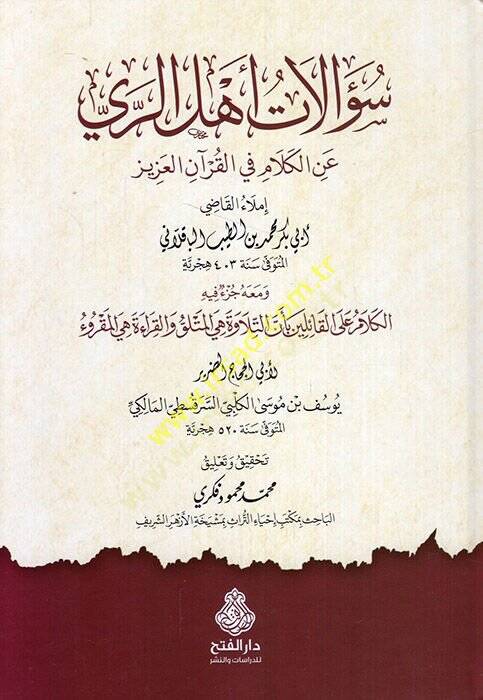 سُؤَالَاتُ أَهْلِ الرَّيِّ
عَنِ الكَلَامِ فِي القُرْآنِ العَزِيزِ
إِمْلَاءُ القَاضِي
أَبِي بَكْرٍ مُحَمَّدِ بْنِ الطَّيِّبِ البَاقِلَّانِيِّ
المُتَوَفَّى سَنَةَ ٤٠٣ هِجْرِيَّةٍ
وَمَعَهُ جُزْءٌ فِيهِ
الكَلَامُ عَلَى القَائِلِينَ بِأَنَّ التِّلَاوَةَ هِيَ المَتْلُوُّ وَالقِرَاءَةَ هِيَ المَقْرُوءُ
لِأَبِي الحَجَّاجِ الضَّرِيرِ
يُوسُفَ بْنِ مُوسَى الكَلْبِيِّ السَّرَقُسْطِيِّ المَالِكِيِّ
المُتَوَفَّى سَنَةَ ٥٢٠ هِجْرِيَّةٍ
تَحْقِيقُ وَتَعْلِيقُ
مُحَمَّد مَحْمُود فِكْرِي
البَاحِثِ بِمَكْتَبِ إِحْيَاءِ التُّرَاثِ بِمَشْيَخَةِ الأَزْهَرِ الشَّرِيفِ
دار الفتح
للدراسات والنشر